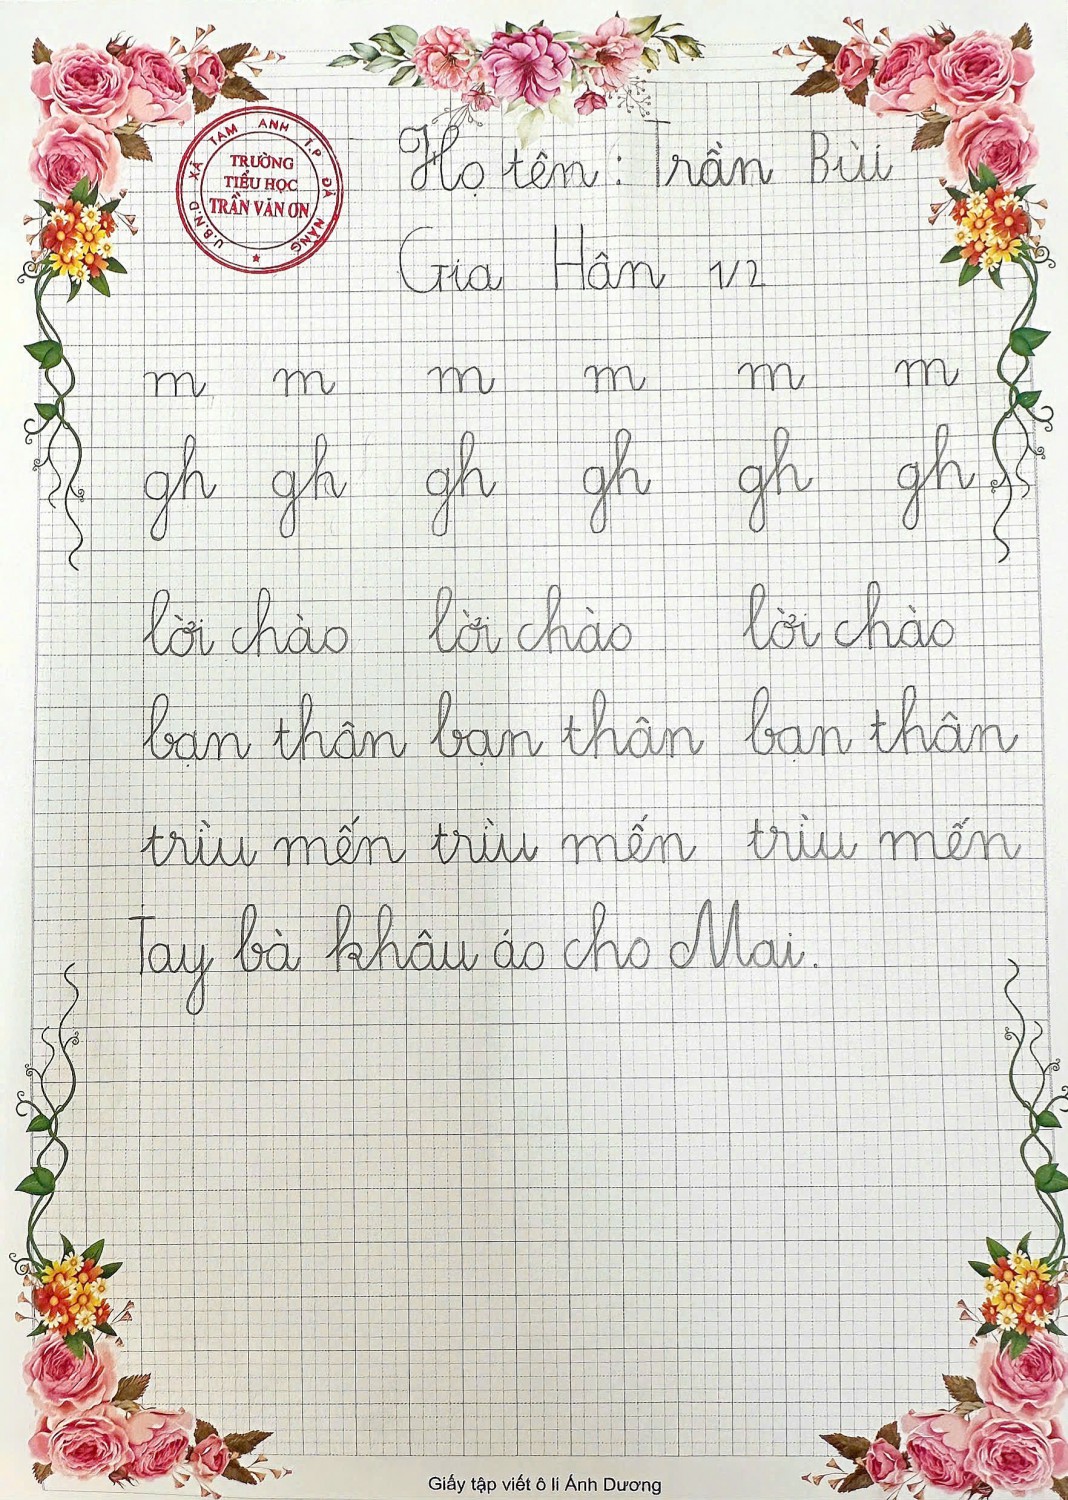 U.B.N.D XÃ TAM ANH T.P ĐÀ NẴNG
TRƯỜNG
TIỂU HỌC
TRẦN VĂN ƠN
Họ tên : Trần Bùi
Gia Hân 1/2
m m m m m m
gh gh gh gh gh gh
lời chào lời chào lời chào
bạn thân bạn thân bạn thân
trìu mến trìu mến trìu mến
Tay bà khâu áo cho Mai.
Giấy tập viết ô li Ánh Dương